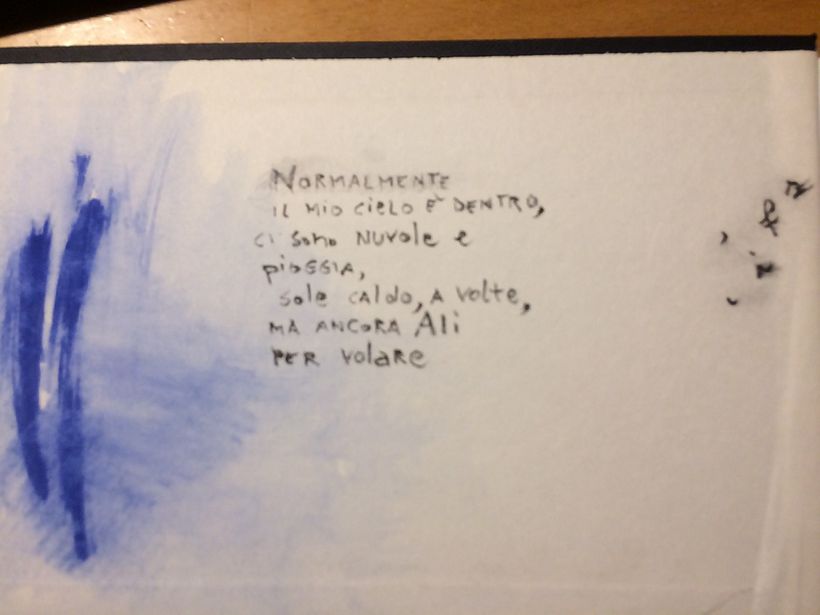 NORMALMENTE
il Mio cielo È DENTRO,
ci sono NUVole e
pioGGIA,
sole CALDO, A volte,
MA ANCORA Ali
PER volARe